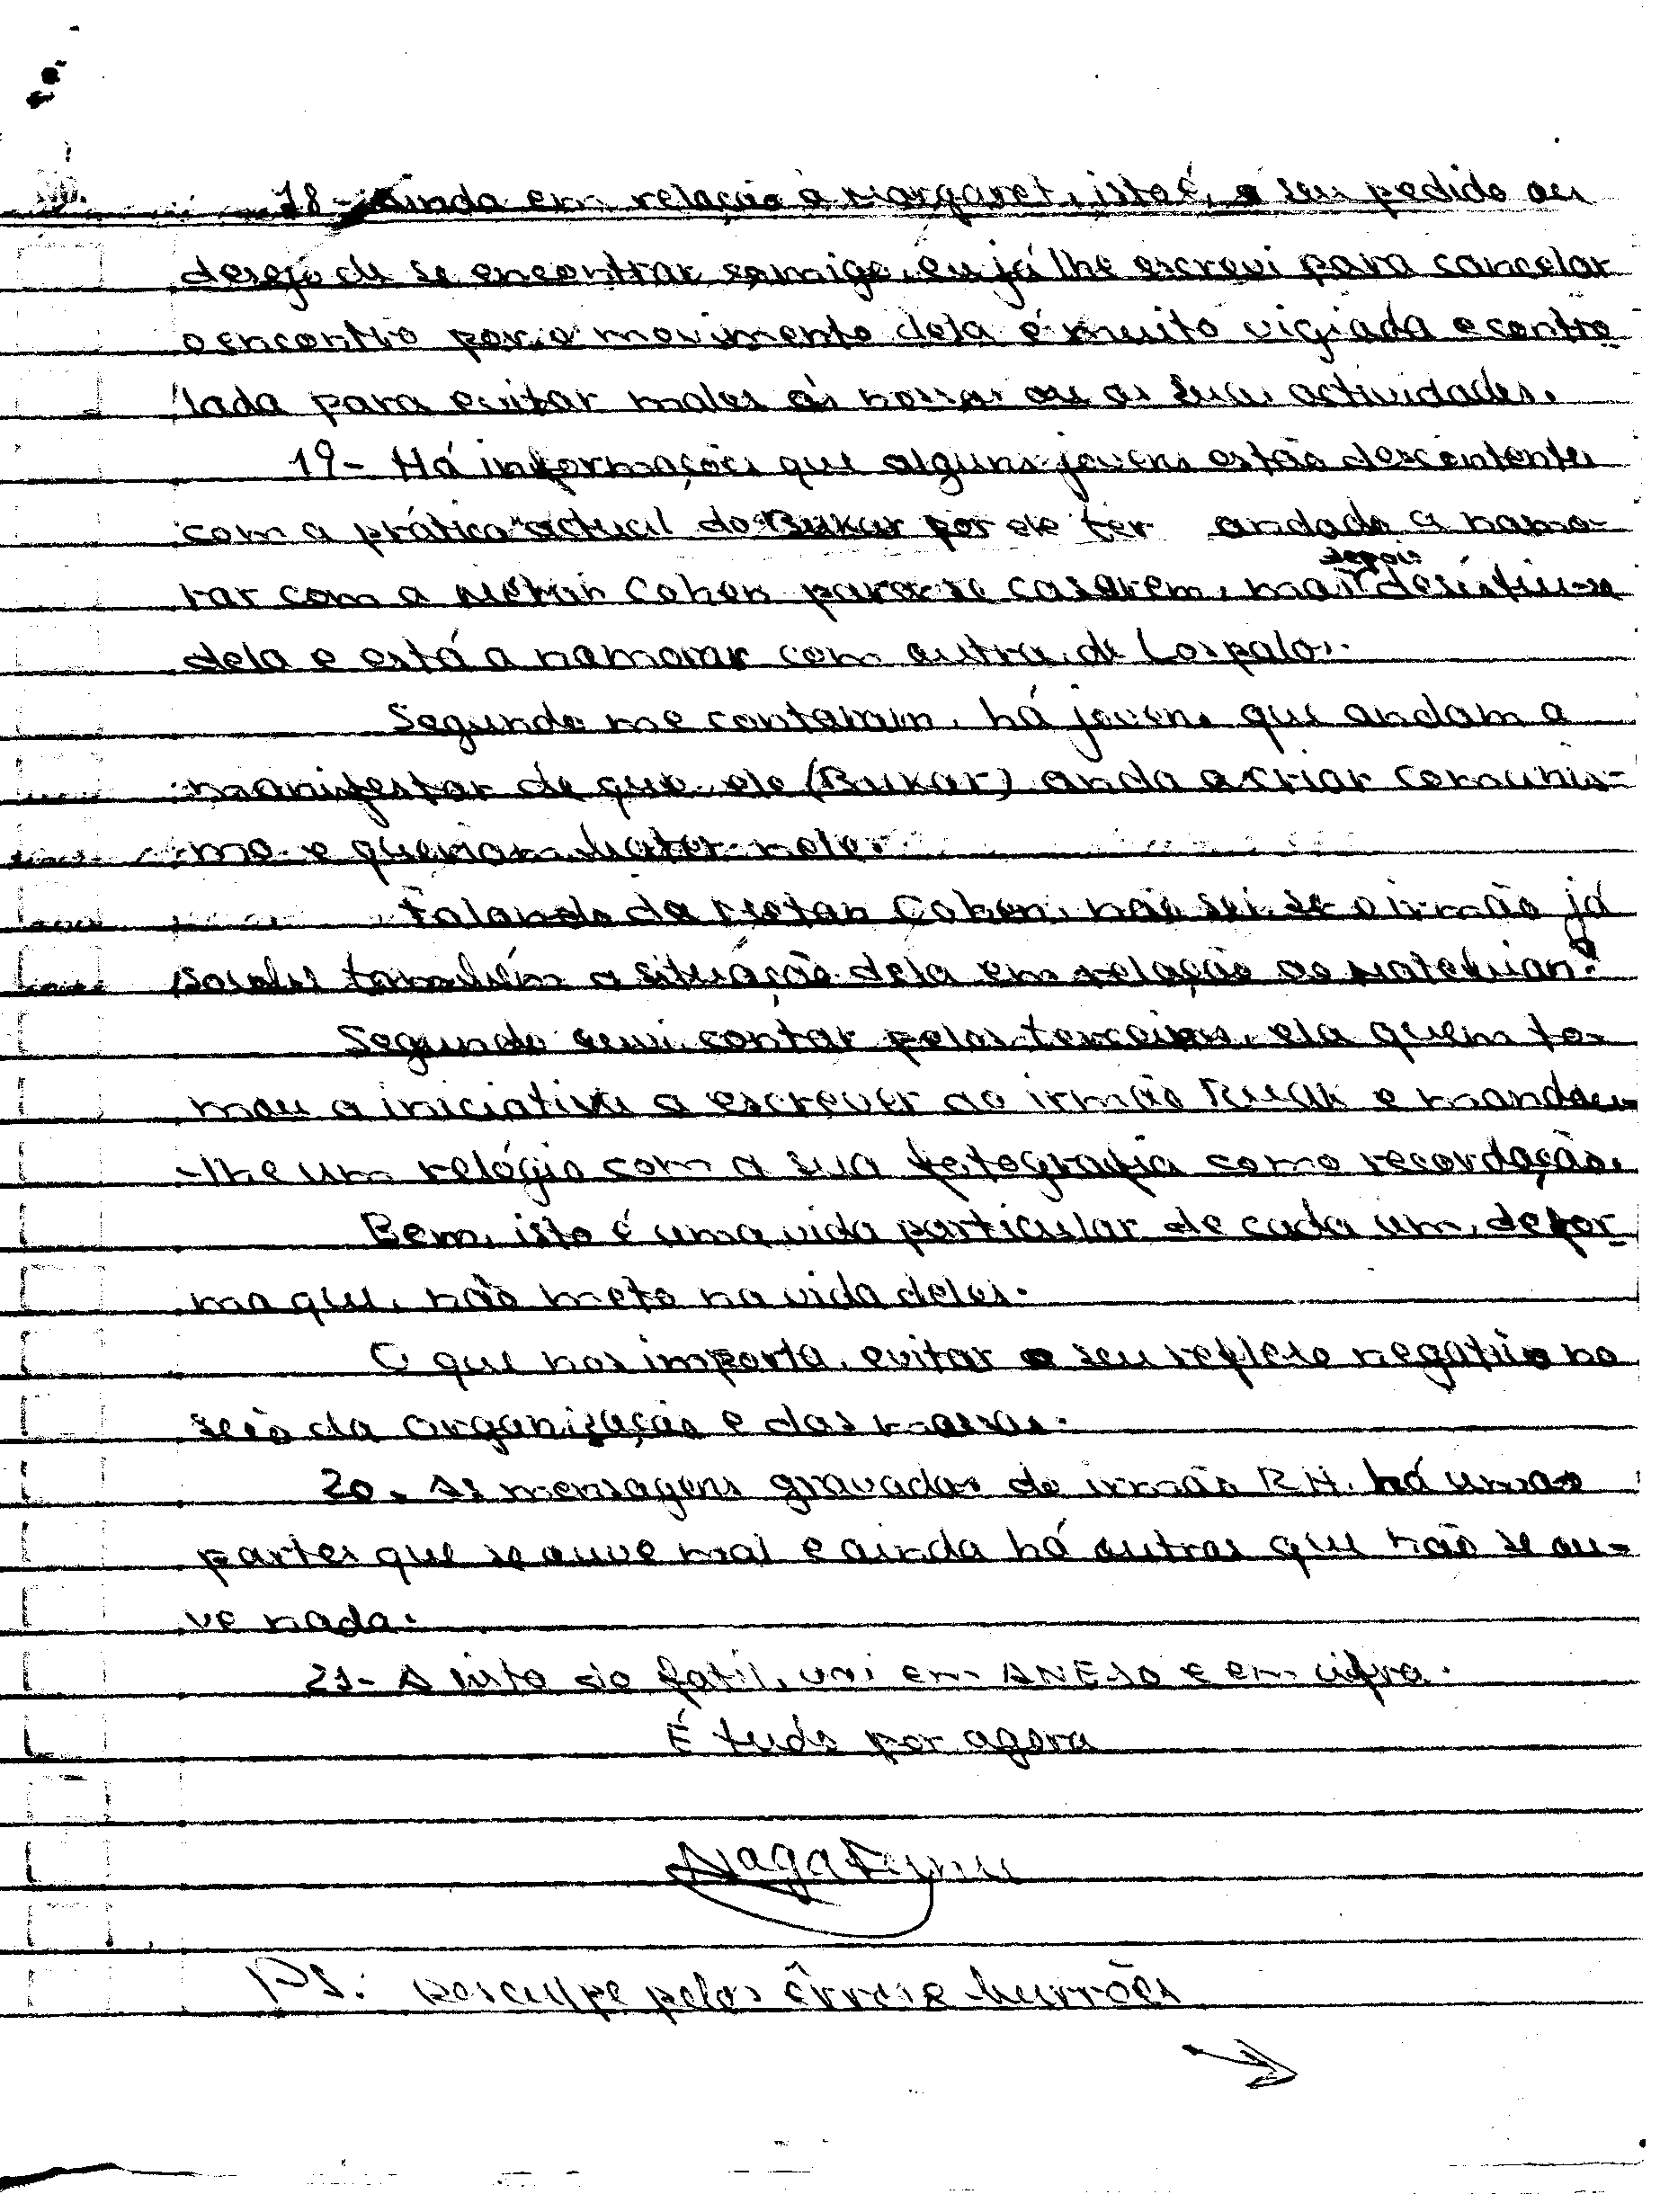 18- Ainda em relação à Margaret, isto é, o seu pedido ou
desejo de se encontrar comigo, eu já lhe escrevi para cancelar
o encontro por o movimento dela é muito vigiada e contro-
lada para evitar males às nossas ou as suas actividades.
19- Há informações que alguns jovens estão descontentes
com a prática actual do Bukar por ele ter andado a namo-
rar com a Cohen para se casarem, mas depois desistiu-se
dela e está a namorar com outra de Lospalos.
Segundo me contaram, há jovens que andam a
manifestar de que ele (Bukar) anda a criar comunis-
mo e queriam bater nele.
Falando da Cohen, não sei se o irmão já
também a situação dela em relação ao
Segundo ouvi contar pelos terceiros, ela quem to-
mou a iniciativa a escrever ao irmão Ruak e mandou-
-lhe um relógio com a sua fotografia como recordação.
Bem, isto é uma vida particular de cada um, de for-
ma que, não meto na vida deles.
O que nos importa, evitar o seu reflexo negativo no
seio da organização e das massas.
20. As mensagens gravadas do irmão R.H. há umas
partes que se ouve mal e ainda há outras que não se ou-
ve nada.
21- A lista do fatil, vai em ANEXO e em cifra.
É tudo por agora
PS: Desculpe pelos êrros e burrões